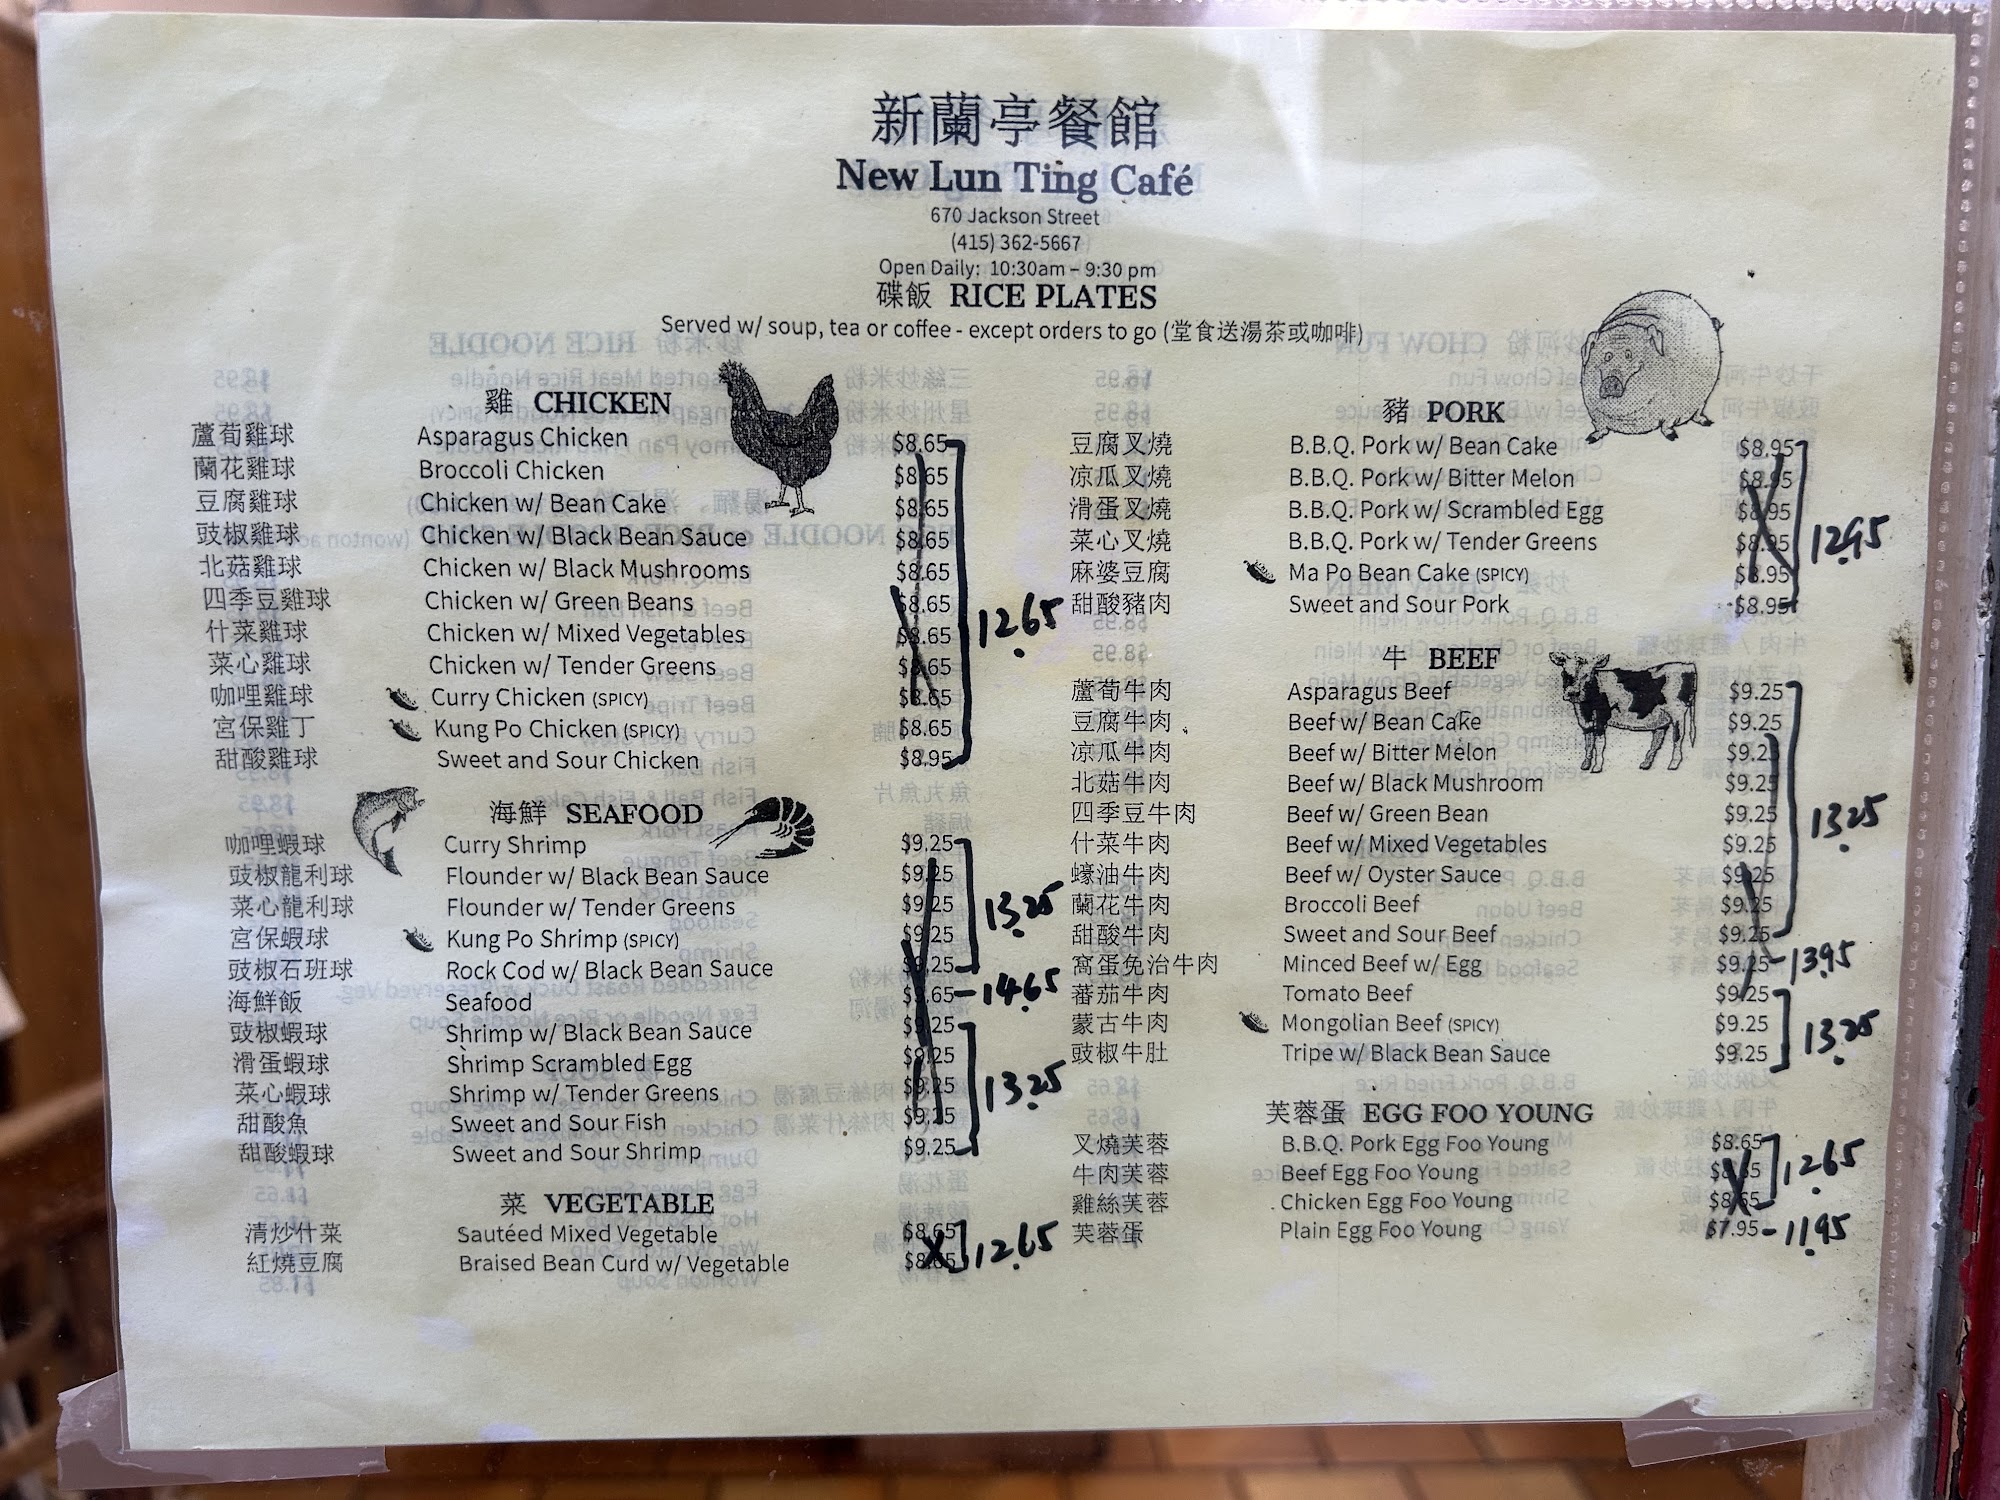 新蘭亭餐館
New Lun Ting Café
670 Jackson Street
(415) 362-5667
Open Daily: 10:30am – 9:30 pm
碟飯 RICE PLATES
Served w/ soup, tea or coffee - except orders to go (堂食送湯茶或咖啡)
雞 CHICKEN
蘆荀雞球 Asparagus Chicken $8.65
蘭花雞球 Broccoli Chicken $8.65
豆腐雞球 Chicken w/ Bean Cake $8.65
豉椒雞球 Chicken w/ Black Bean Sauce $8.65
北菇雞球 Chicken w/ Black Mushrooms $8.65
四季豆雞球 Chicken w/ Green Beans $8.65
什菜雞球 Chicken w/ Mixed Vegetables $8.65
12.65
菜心雞球 Chicken w/ Tender Greens $8.65
咖哩雞球 Curry Chicken (SPICY) $8.65
宮保雞丁 Kung Po Chicken (SPICY) $8.65
甜酸雞球 Sweet and Sour Chicken $8.95
海鮮 SEAFOOD
咖哩蝦球 Curry Shrimp $9.25
豉椒龍利球 Flounder w/ Black Bean Sauce $9.25
菜心龍利球 Flounder w/ Tender Greens $9.25
13.25
宮保蝦球 Kung Po Shrimp (SPICY) $9.25
豉椒石班球 Rock Cod w/ Black Bean Sauce $9.25
海鮮飯 Seafood $9.65 – 14.65
豉椒蝦球 Shrimp w/ Black Bean Sauce $9.25
滑蛋蝦球 Shrimp Scrambled Egg $9.25
菜心蝦球 Shrimp w/ Tender Greens $9.25
13.25
甜酸魚 Sweet and Sour Fish $9.25
甜酸蝦球 Sweet and Sour Shrimp $9.25
菜 VEGETABLE
清炒什菜 Sautéed Mixed Vegetable $8.65
12.65
紅燒豆腐 Braised Bean Curd w/ Vegetable $8.65
豬 PORK
豆腐叉燒 B.B.Q. Pork w/ Bean Cake $8.95
凉瓜叉燒 B.B.Q. Pork w/ Bitter Melon $8.95
滑蛋叉燒 B.B.Q. Pork w/ Scrambled Egg $8.95
菜心叉燒 B.B.Q. Pork w/ Tender Greens $8.95
12.95
麻婆豆腐 Ma Po Bean Cake (SPICY) $8.95
甜酸豬肉 Sweet and Sour Pork $8.95
牛 BEEF
蘆荀牛肉 Asparagus Beef $9.25
豆腐牛肉 Beef w/ Bean Cake $9.25
凉瓜牛肉 Beef w/ Bitter Melon $9.25
北菇牛肉 Beef w/ Black Mushroom $9.25
四季豆牛肉 Beef w/ Green Bean $9.25
13.25
什菜牛肉 Beef w/ Mixed Vegetables $9.25
蠔油牛肉 Beef w/ Oyster Sauce $9.25
蘭花牛肉 Broccoli Beef $9.25
甜酸牛肉 Sweet and Sour Beef $9.25
窩蛋免治牛肉 Minced Beef w/ Egg $9.25 – 13.95
蕃茄牛肉 Tomato Beef $9.25
蒙古牛肉 Mongolian Beef (SPICY) $9.25
13.25
豉椒牛肚 Tripe w/ Black Bean Sauce $9.25
芙蓉蛋 EGG FOO YOUNG
叉燒芙蓉 B.B.Q. Pork Egg Foo Young $8.65
牛肉芙蓉 Beef Egg Foo Young $8.65
12.65
雞絲芙蓉 Chicken Egg Foo Young $8.65
芙蓉蛋 Plain Egg Foo Young $7.95 – 11.95